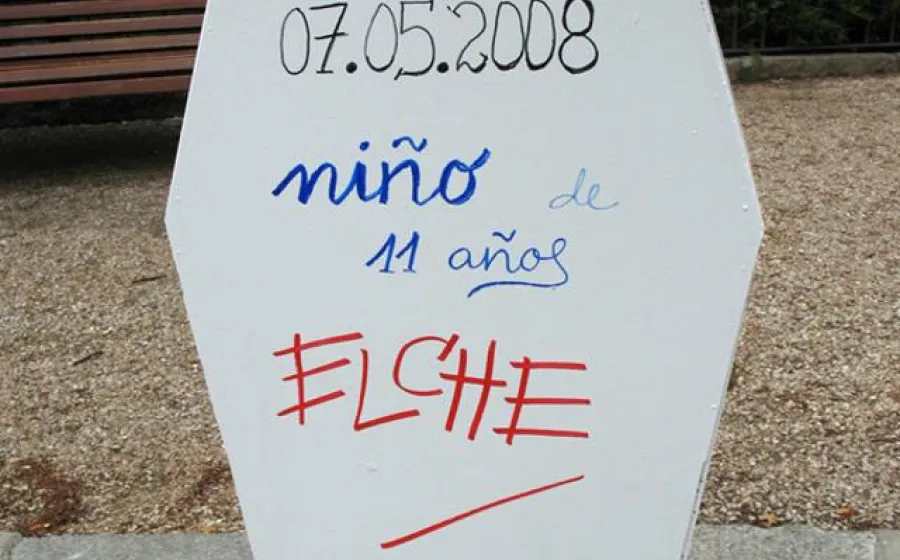 07.05.2008
niño de
11 años
ELCHE